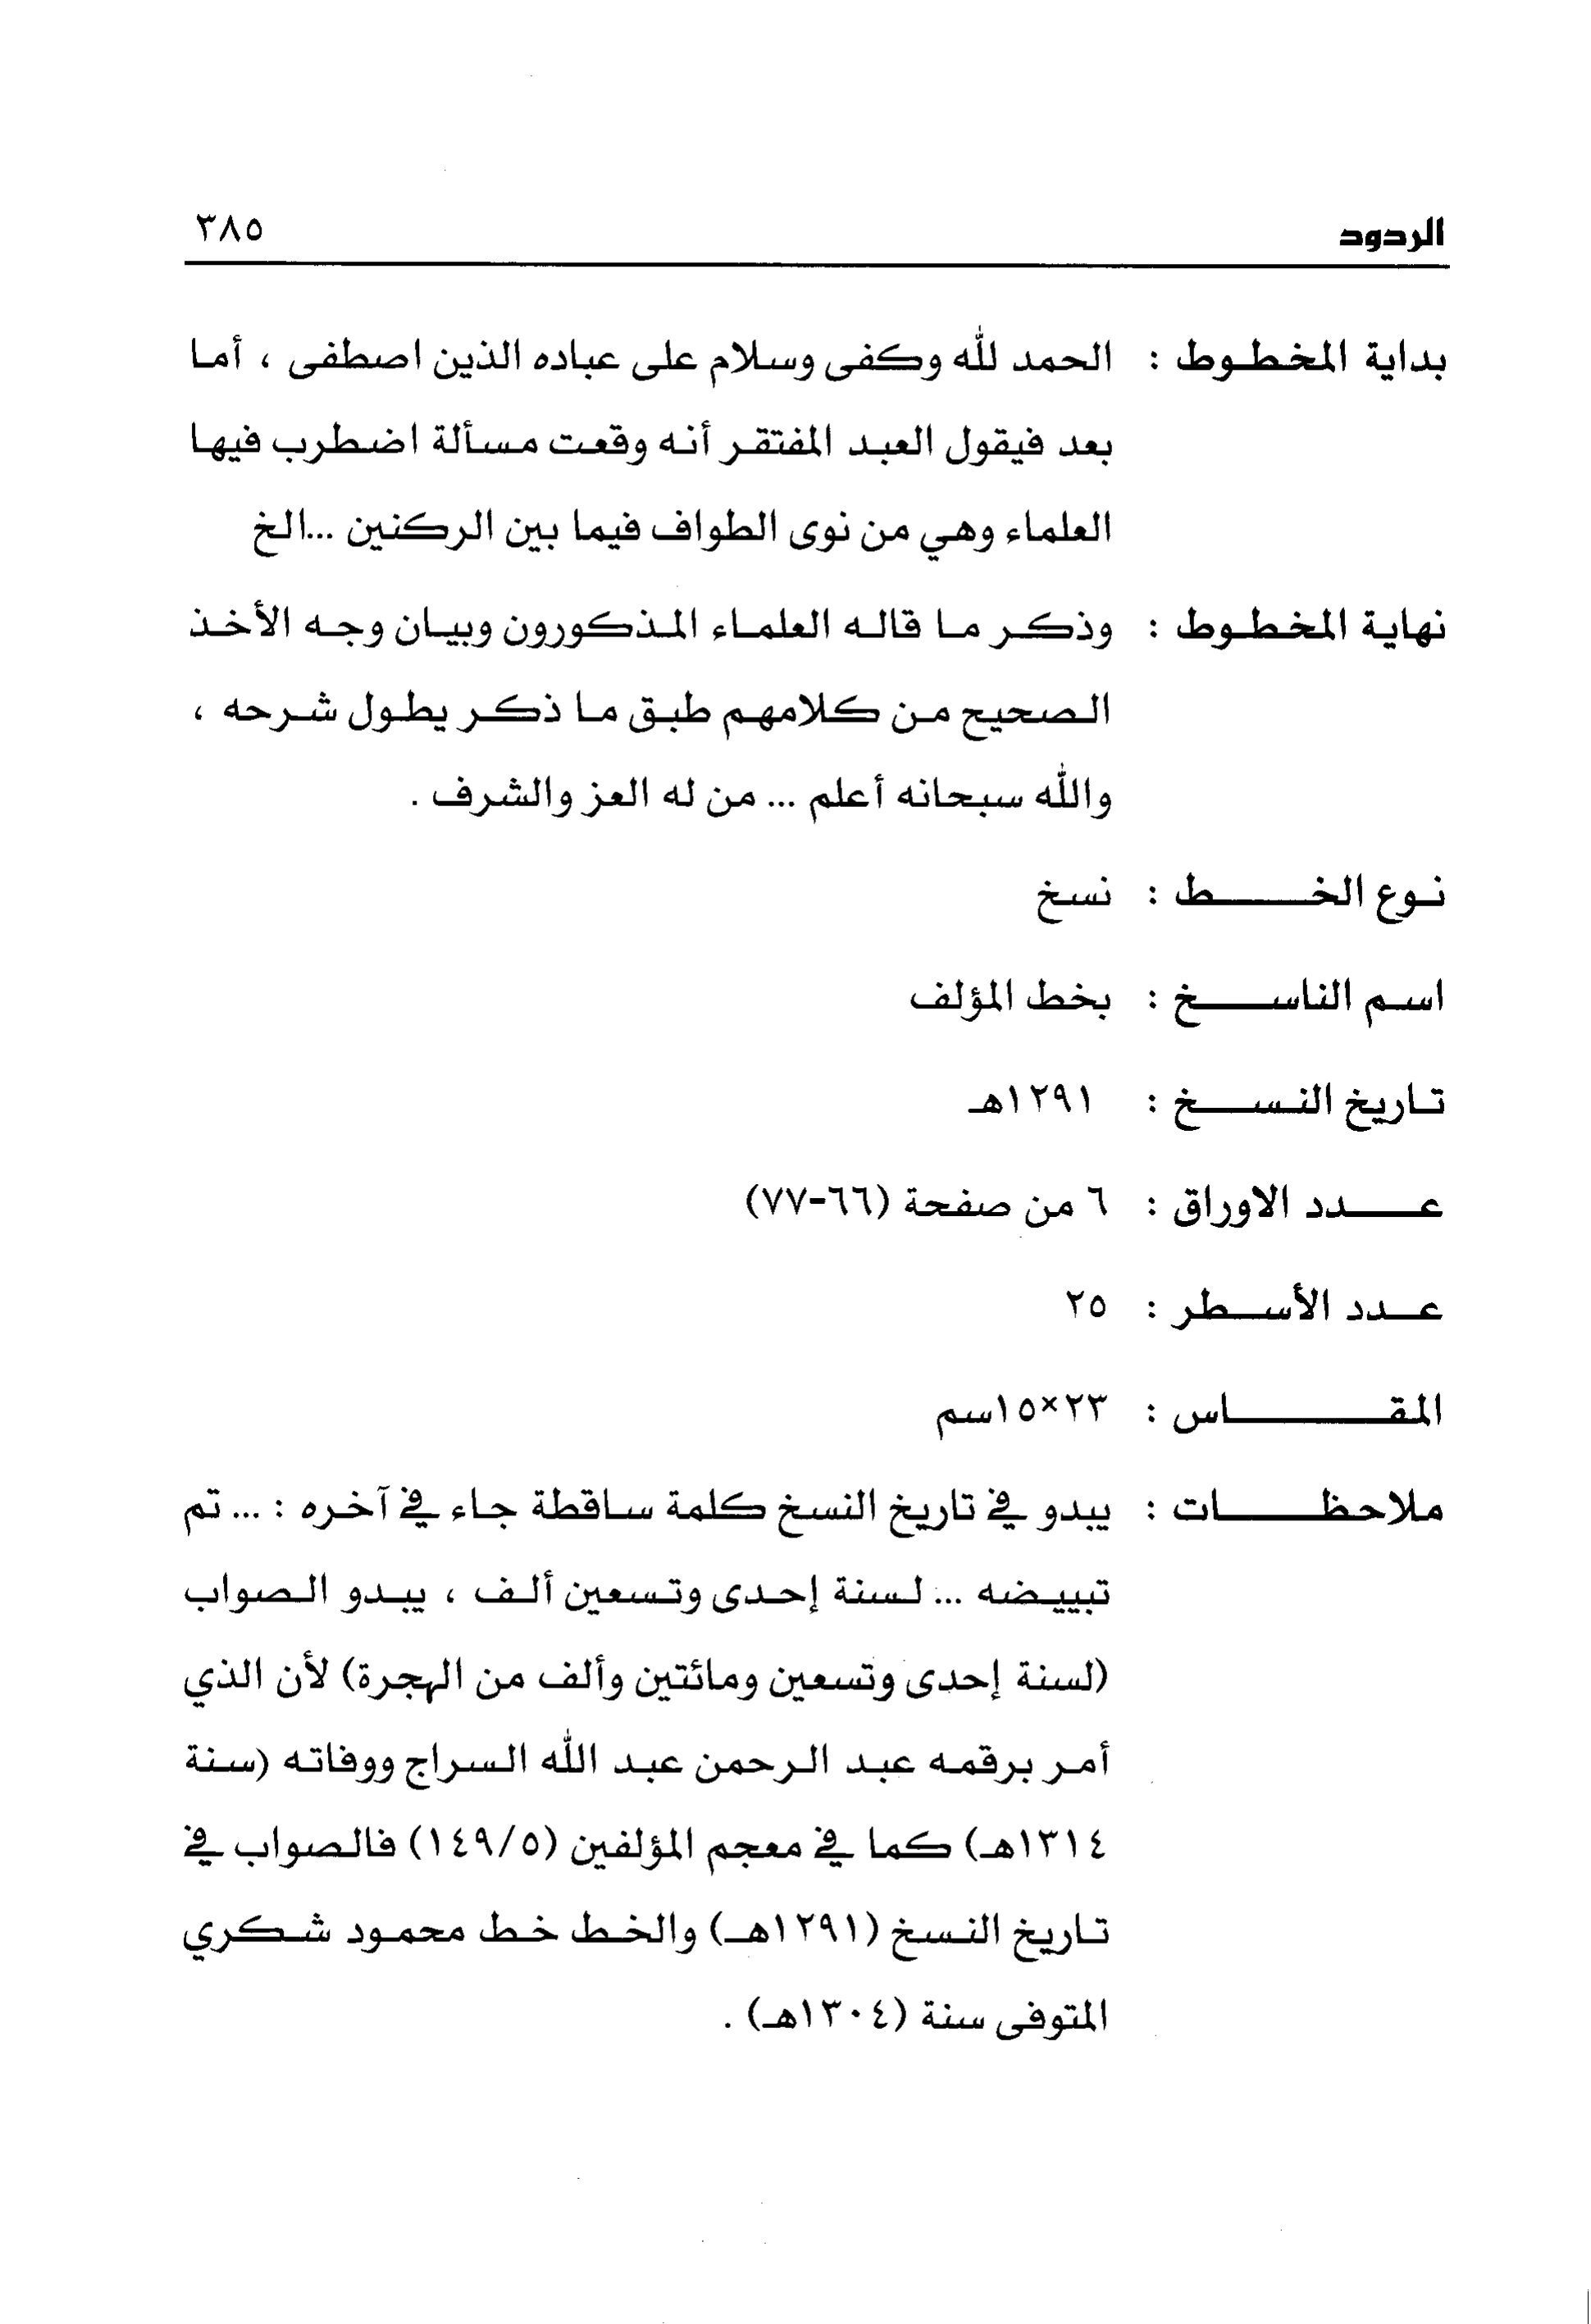 الردود ٣٨٥
بداية المخطوط : الحمد لله وكفى وسلام على عباده الذين اصطفى ، أما
بعد فيقول العبد المفتقر أنه وقعت مسألة اضطرب فيها
العلماء وهي من نوى الطواف فيما بين الركنين ...الخ
نهاية المخطوط : وذكر ما قاله العلماء المذكورون وبيان وجه الأخذ
الصحيح من كلامهم طبق ما ذكر يطول شرحه ،
والله سبحانه أعلم ... من له العز والشرف .
نوع الخط : نسخ
اسم الناسخ : بخط المؤلف
تاريخ النسخ : ١٢٩١هـ
عدد الاوراق : ٦ من صفحة (٦٦-٧٧)
عدد الأسطر : ٢٥
المقاس : ٢٣×١٥سم
ملاحظات : يبدو في تاريخ النسخ كلمة ساقطة جاء في آخره : ... تم
تبييضه ... لسنة إحدى وتسعين ألف ، يبدو الصواب
(لسنة إحدى وتسعين ومائتين وألف من الهجرة) لأن الذي
أمر برقمه عبد الرحمن عبد الله السراج ووفاته (سنة
١٣١٤هـ) كما في معجم المؤلفين (١٤٩/٥) فالصواب في
تاريخ النسخ (١٢٩١هـ) والخط خط محمود شكري
المتوفى سنة (١٣٠٤هـ) .